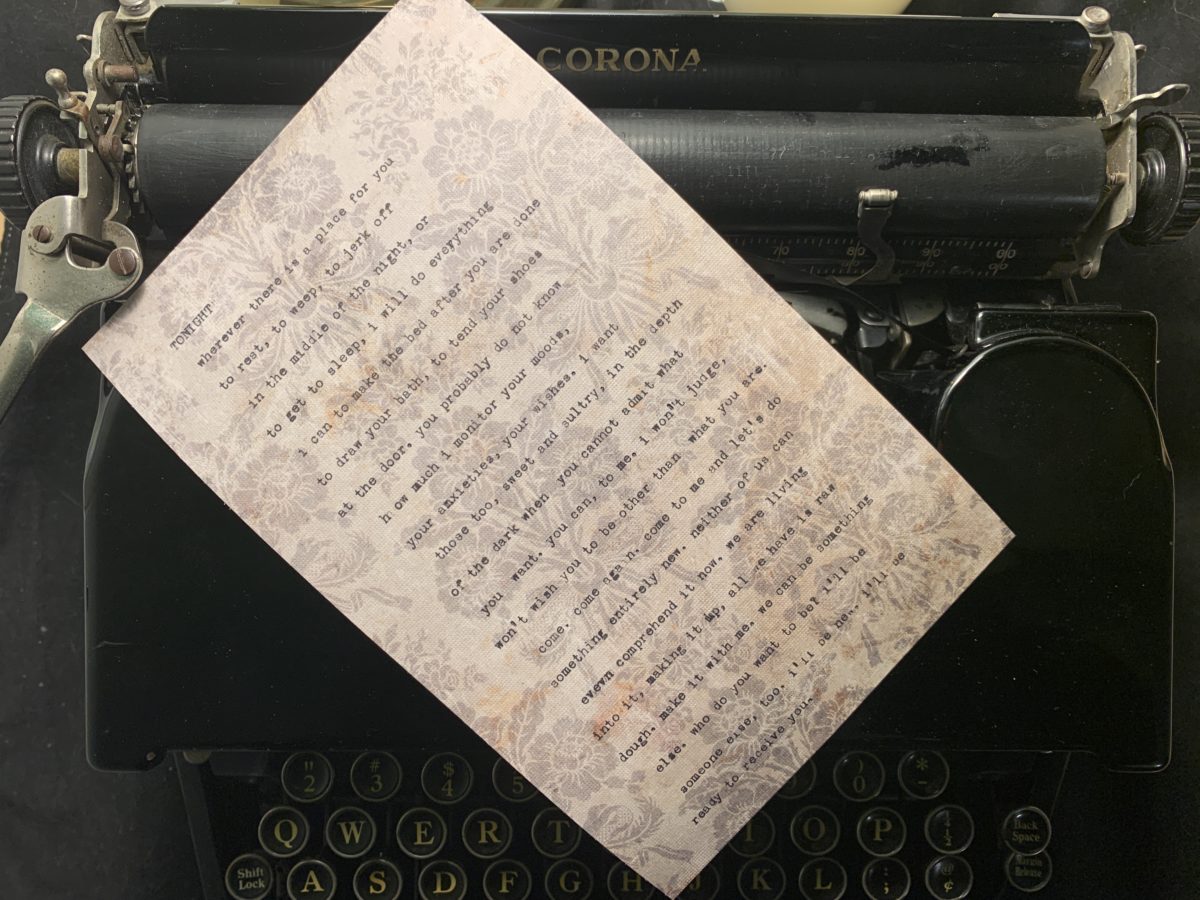 CORONA
TONIGHT
wherever there is a place for you
to rest, to weep, to jerk off
in the middle of the night, or
to get to sleep, i will do everything
i can to make the bed after you are done
to draw your bath, to tend your shoes
at the door. you probably do not know
h ow much i monitor your moods,
your anxieties, your wishes. i want
those too, sweet and sultry, in the depth
of the dark when you cannot admit what
you want. you can, to me. i won't judge,
won't wish you to be other than what you are.
come. come again. come to me and let's do
something entirely new. neither of us can
evevn comprehend it now. we are living
into it, making it up, all we have is raw
dough. make it with me. we can be something
else. who do you want to be? i'll be
someone else, too. i'll be here. i'll be
ready to receive you.
70 80 90
" 2 # 3 $ 4 5 ) 0 * -
Q W E R T I O P Back Space
Shift Lock A S D F G H J K L : ; @ ¢ Margin Release